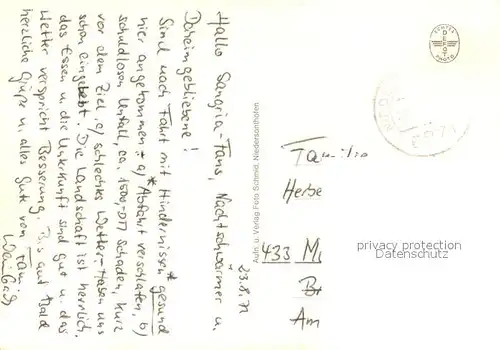 Hallo Sangria-Fans, Nachtschwärmer u.
Daheimgebliebene!
Sind nach Fahrt mit Hindernissen* gesund
hier angekommen. * a) Abfahrt verschlafen, b)
schuldlosen Unfall, ca. 1500,- DM Schaden, kurz
vor dem Ziel, c) schlechtes Wetter. Haben uns
schon eingelebt. Die Landschaft ist herrlich,
das Essen u. die Unterkunft sind gut u. das
Wetter verspricht Besserung. Bis auf bald
herzliche Grüße u. alles Gute von Fam.
23.8.71
Aufn. u. Verlag Foto Schmid, Niedersonthofen
ECHTES
DEFOT
PHOTO
Familie
Herbe
433 M
Br
Am
privacy protection
Datenschutz